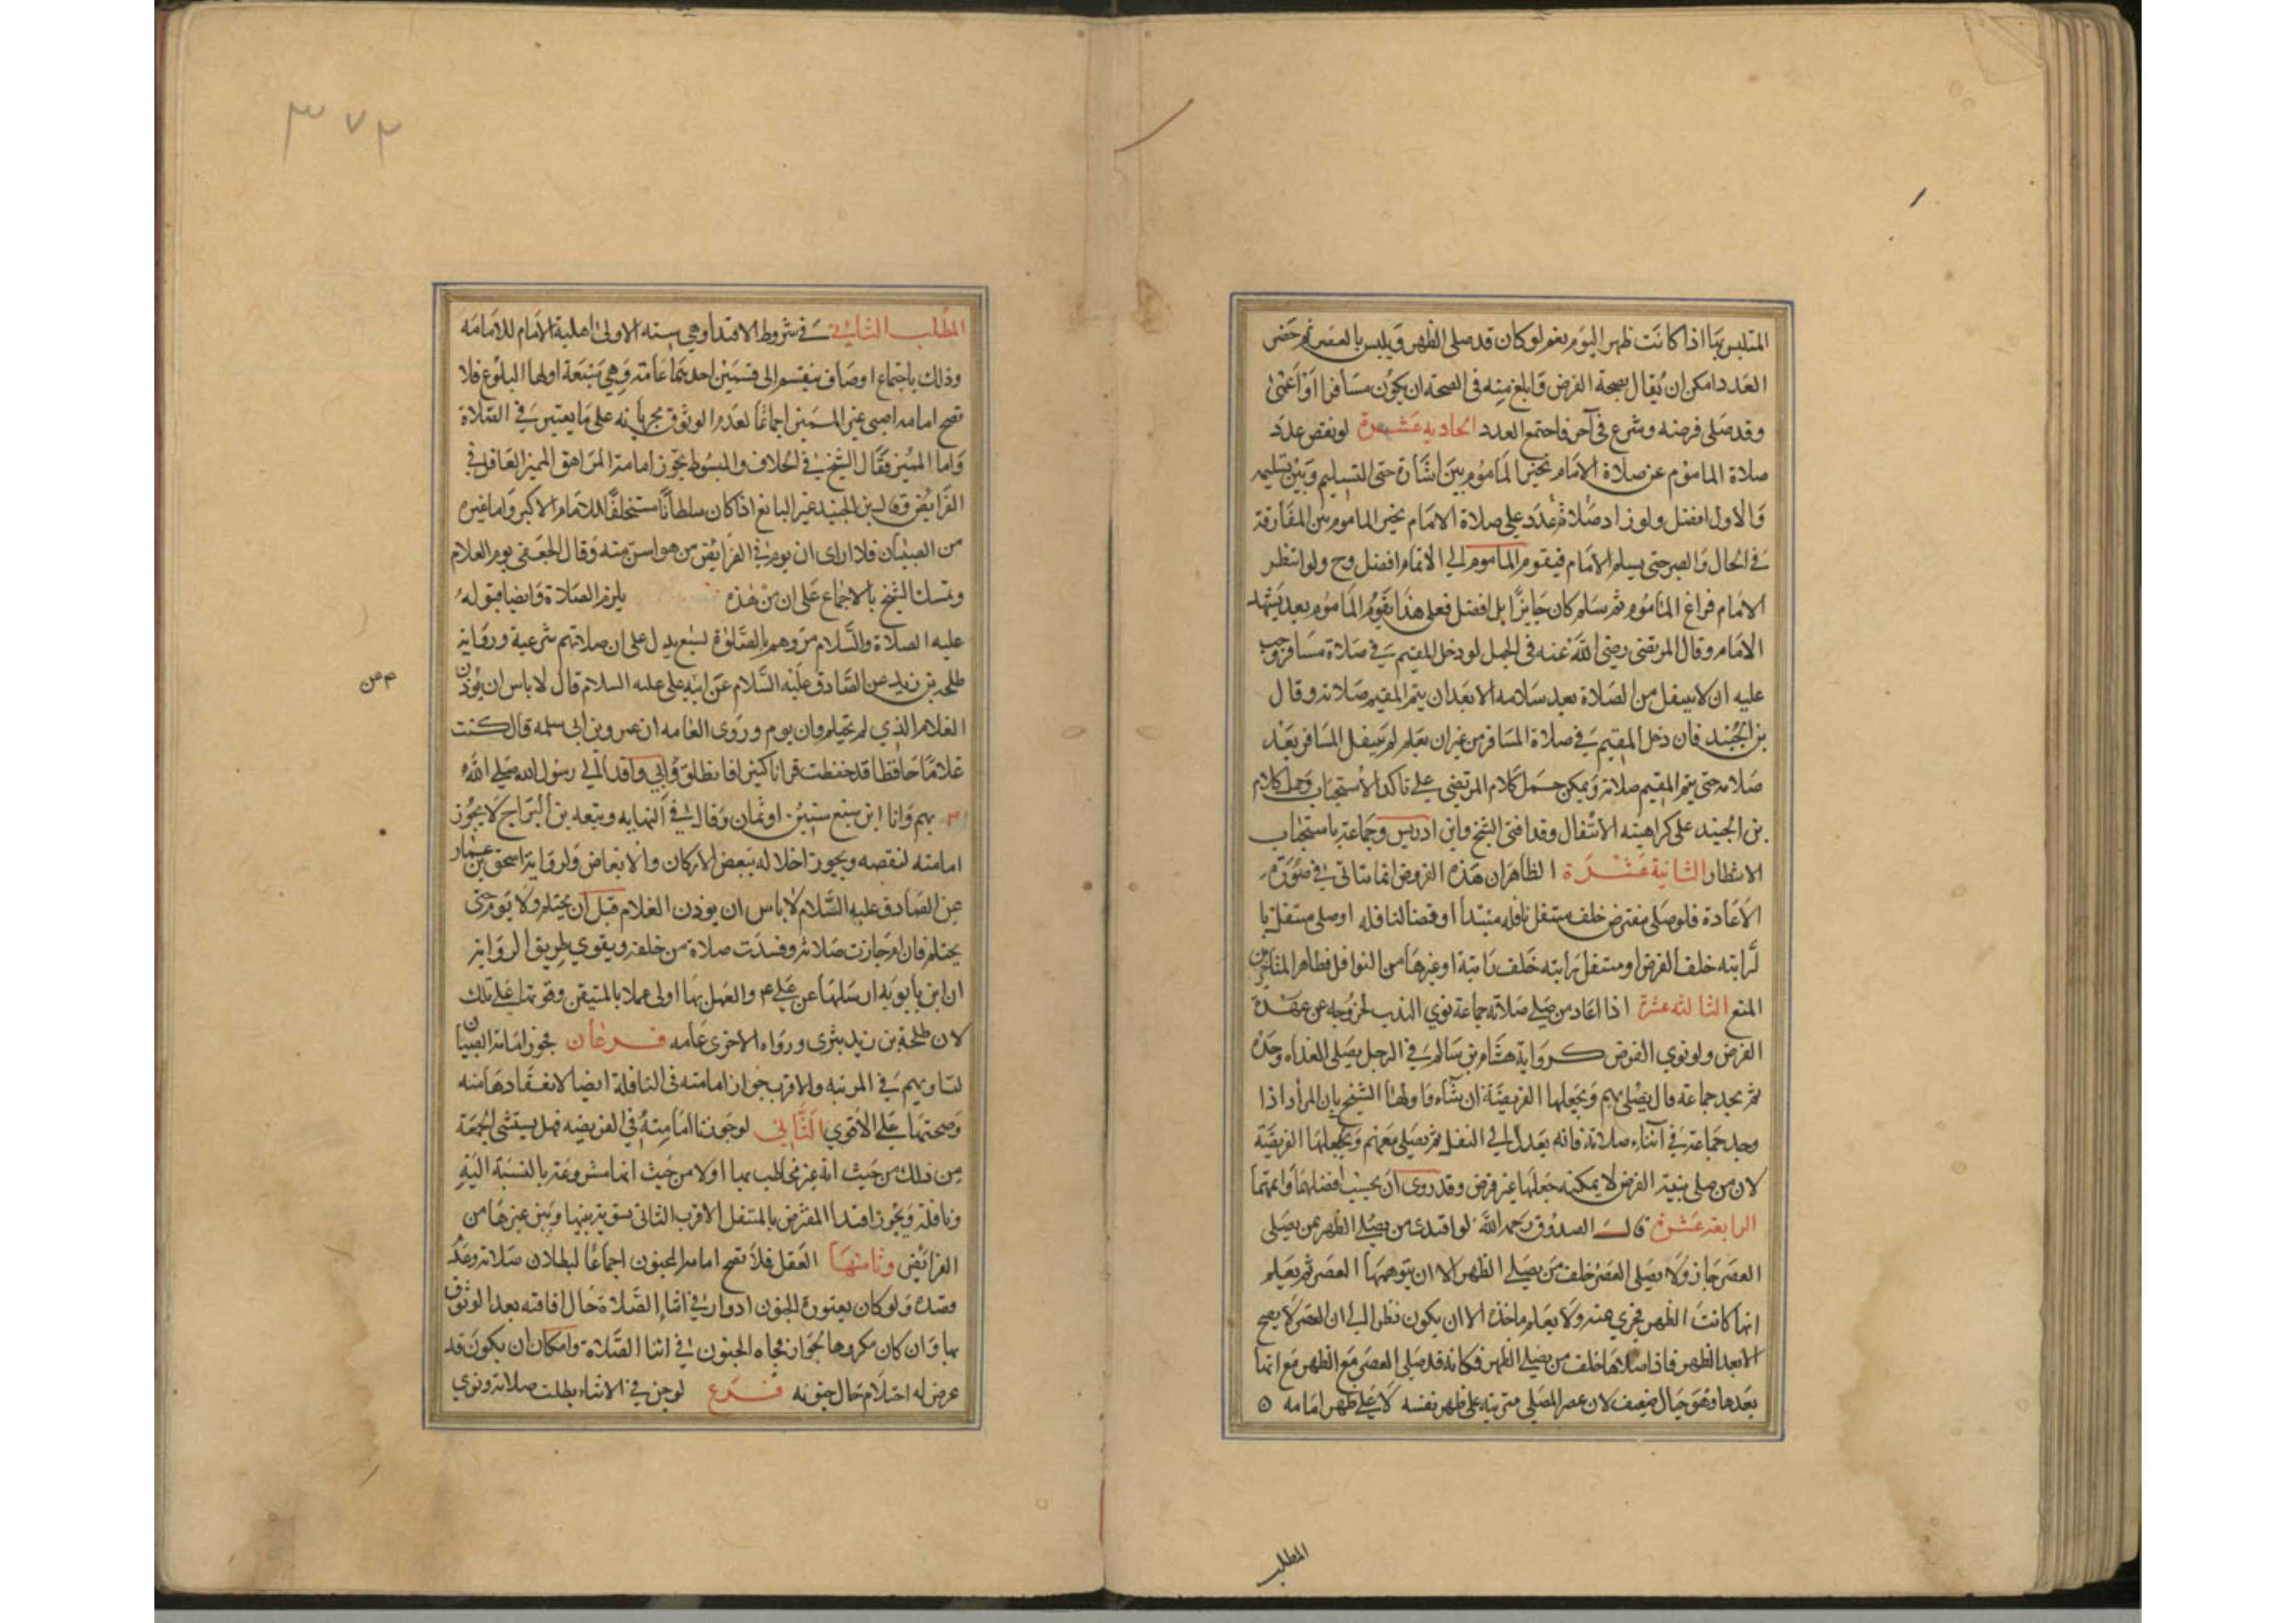 المتلبس بها اذا كانت ظهر اليوم نعم لو كان قد صلى الظهر وتلبس بالعصر ثم حضر
العدد امكن ان يقال بصحة الفرض وابلغ منه في الصحة ان يكون مسافرا او اعمى
وقد صلى فرضه وشرع في آخر فاجتمع العدد الحادية عشرة لو نقص عدد
صلاة الماموم عن صلاة الامام تخير الماموم بين حتى التسليم وبين تسليمه
والاول افضل ولو زاد صلاة عدد على صلاة الامام تخير الماموم بين المفارقة
في الحال والصبر حتى يسلم الامام فيقوم الماموم الى الاتمام افضل وح ولو انتظر
الامام فراغ الماموم ثم سلم كان جايزا بل افضل فعلى هذا يقوم الماموم بعد تشهد
الامام وقال المرتضى رضي الله عنه في الجمل لو دخل المقيم في صلاة مسافر وجب
عليه ان لا ينفتل من الصلاة بعد سلامه الا بعد ان يتم المقيم صلاته وقال
بن الجنيد فان دخل المقيم في صلاة المسافر من غير ان يعلم لم ينفتل المسافر بعد
صلاته حتى يتم المقيم صلاته ويمكن حمل كلام المرتضى على تاكد الاستحباب وحمل كلام
بن الجنيد على كراهيته الانتفال وقد افتى الشيخ وابن ادريس وجماعة باستحباب
الانتظار الثانية عشرة الظاهر ان هذه الفروض انما تتاتى في صورة
الاعادة فلو صلى مفترض خلف متنفل نافلة مبتداة او قضا لنافلة او صلى متنفل با
لراتبه خلف الفرض او متنفل براتبه خلف راتبة او غيرها من النوافل فظاهر المتاخرين
المنع الثالثة عشرة اذا اعاد من صلى صلاته جماعة نوى الندب لخروجه عن عهدة
الفرض ولو نوى الفرض كرواية هشام بن سالم في الرجل يصلي الغداه وحده
ثم يجد جماعة قال يصلي بهم ويجعلها الفريضة ان شاء واولها الشيخ بان المراد اذا
وجد جماعة في اثناء صلاته فانه يعدل الى النفل ثم يصلي معهم ويجعلها الفريضة
لان من صلى بنية الفرض لا يمكنه جعلها غير فرض وقد روى ان يحسب افضلهما واتمهما
الرابعة عشرة قال الصدوق رحمه الله لو اقتدى من يصلي الظهر بمن يصلي
العصر جاز ولا يصلي العصر خلف من يصلي الظهر الا ان يتوهمها العصر ثم يعلم
انها كانت الظهر فيجزي عنه ولا يعلم ماخذه الا ان يكون نظر الى ان العصر لا يصح
الا بعد الظهر فاذا صلاها خلف من يصلي الظهر فكانه قد صلى العصر مع الظهر مع انها
بعدها وهو خيال ضعيف لان عصر المصلي مترتبه على ظهر نفسه لا على ظهر امامه ٥
المطلب
٣٧٣
المطلب الثاني في شروط الاقتدا وهي سته الاولى اهلية الامام للامامه
وذلك باجتماع اوصاف ينقسم الى قسمين احدهما عامة وهي اولها البلوغ فلا
تصح امامه الصبي غير المميز اجماعا لعدم الوثوق بجريانه على ما يعتبر في الصلاة
واما المميز فقال الشيخ في الخلاف والمبسوط يجوز امامة المراهق المميز العاقل في
الفرايض وقال بن الجنيد غير البالغ اذا كان سلطانا مستخلفا للامام الاكبر واما غيره
من الصبيان فلا ارى ان يوم في الفرايض من هو اسن منه وقال الجعفي يوم الغلام
وتمسك الشيخ بالاجماع على ان من هذه يلزم الصلاة وايضا قوله
عليه الصلاة والسلام مروهم بالصلوة لسبع يدل على ان صلاتهم شرعية ورواية
طلحه بن زيد عن الصادق عليه السلام عن ابيه علي عليه السلام قال لا باس ان يوذن
الغلام الذي لم يحتلم وان يوم وروى العامه ان عمرو بن ابي سلمه قال كنت
غلاما حافظا قد حفظت قرانا كثيرا فانطلق وابي وافدا الى رسول الله صلى الله
بهم وانا ابن سبع سنين او ثمان وقال في النهايه وتبعه بن البراج لا يجوز
امامته لنقصه ويجوز اخلاله ببعض الاركان والابعاض ولرواية اسحق بن عمار
عن الصادق عليه السلام لا باس ان يوذن الغلام قبل ان يحتلم ولا يوم حتى
يحتلم فان ام جازت صلاته وفسدت صلاة من خلفه ويقوي طريق الرواية
ان ابن بابويه ارسلها عن علي ع والعمل بها اولى عملا بالمتيقن وقوتها على تلك
لان طلحة بن زيد بتري ورواه الاخرى عامه فرعان يجوز امامة الصبيان
لتساويهم في المرتبه والاقرب جواز امامته في النافلة ايضا لانعقادها منه
وصحتها على الاقوى الثاني لو جوزنا امامته في الفريضه فهل يستثنى الجمعة
من ذلك من حيث انه غير مخاطب بها اولا من حيث انها مشروعة بالنسبة اليه
ونافلة ويجوز اقتدا المفترض بالمتنفل الاقرب الثاني تسوية بينها وبين غيرها من
الفرائض وثامنها العقل فلا تصح امامة المجنون اجماعا لبطلان صلاته وعدم
قصده ولو كان يعتوره الجنون ادوارا في اثنا الصلاة حال افاقته بعد الوثوق
بها وان كان مكروها لجواز فجاه الجنون في اثنا الصلاة وامكان ان يكون قد
عرض له احتلام حال جنونه فرع لو جن في الاثناء بطلت صلاته ونوى